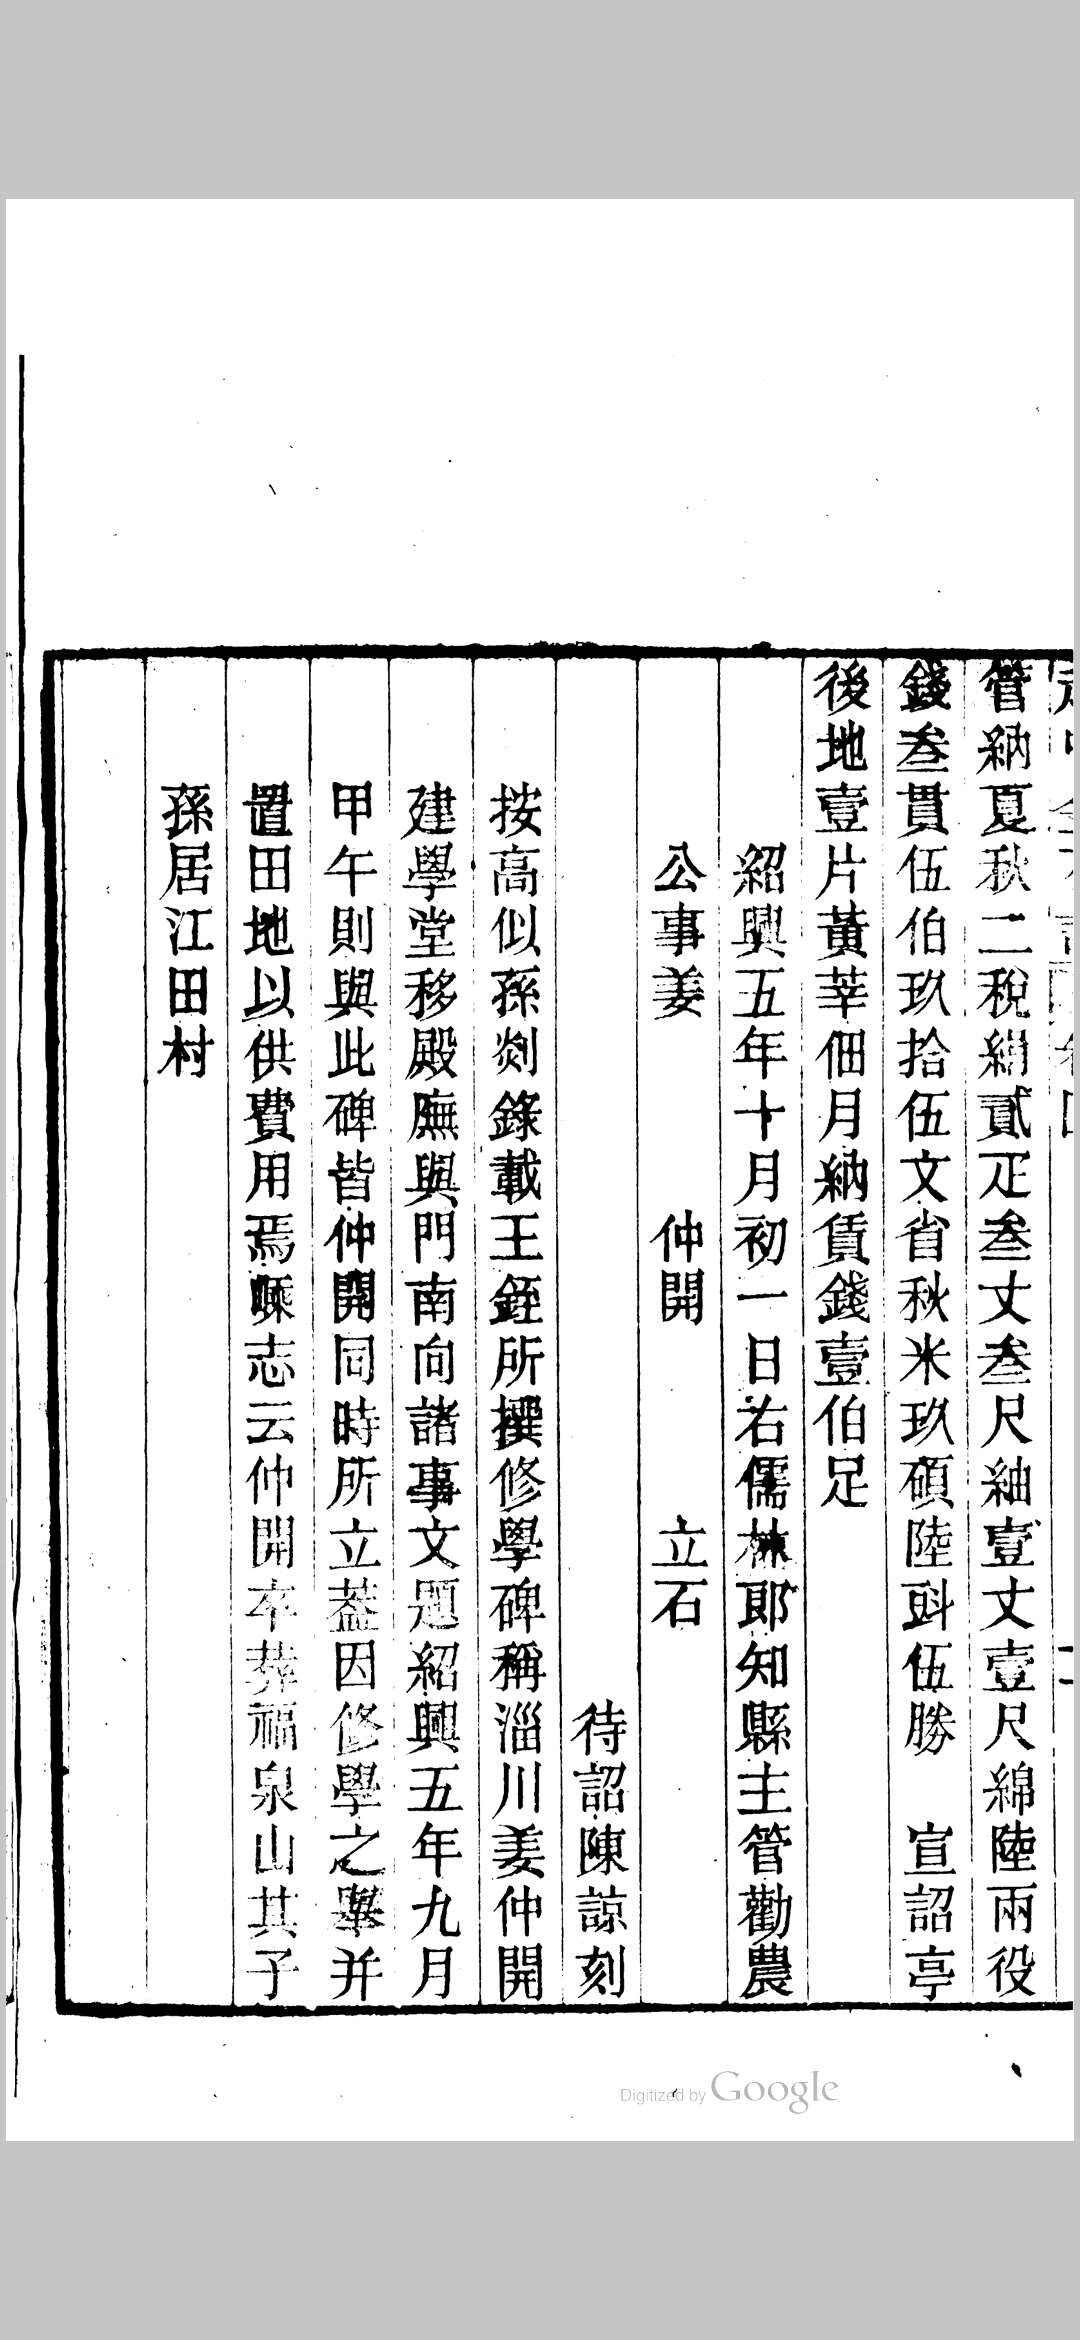 管納夏秋二稅絹貳疋叄丈叄尺紬壹丈壹尺綿陸兩役
錢叄貫伍伯玖拾伍文省秋米玖碩陸㪷伍勝　宣詔亭
後地壹片黃莘佃月納賃錢壹伯足
紹興五年十月初一日右儒林郎知縣主管勸農
公事姜　仲開　立石
待詔陳諒刻
按高似孫剡錄載王銍所撰修學碑稱淄川姜仲開
建學堂移殿廡與門南向諸事文題紹興五年九月
甲午則與此碑皆仲開同時所立蓋因修學之舉并
置田地以供費用焉嵊志云仲開卒葬福泉山其子
孫居江田村
Digitized by Google